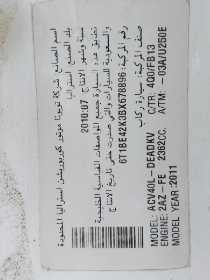 اسم الصانع: شركة تويوتا موتور كوربوريشن استراليا المحدودة
بلد الصنع: استراليا
سنة وشهر الانتاج: 2010:07
تطابق هذه السيارة جميع المواصفات القياسية الخليجية
والسعودية للسيارات والتي صدرت حتى تاريخ الانتاج
رقم المركبة: 6T1BE42K3BX678896
صنف المركبة: سيارة ركاب
MODEL: ACV40L-DEADKV C/TR: 4Q0/FB13
ENGINE: 2AZ-FE 2362CC. A/TM: -03A/U250E
MODEL YEAR: 2011